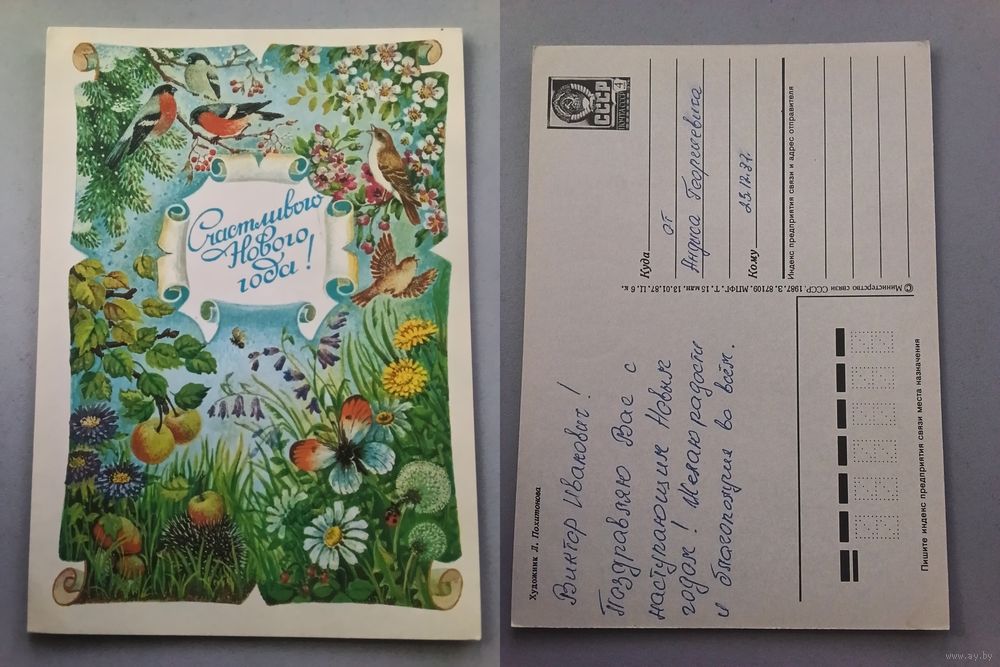 Счастливого
Нового
года!
ПОЧТА СССР
4
СССР
Куда
от
Андриса Георгиевича
Кому
25.12.87.
Индекс предприятия связи и адрес отправителя
© Министерство связи СССР. 1987. З. 87109. МПФГ. Т. 15 млн. 13.01.87. Ц. 6 к.
Художник Л. Похитонова
Виктор Иванович!
Поздравляю Вас с
наступающим Новым
годом! Желаю радости
и благополучия во всём.
Пишите индекс предприятия связи места назначения
www.ay.by